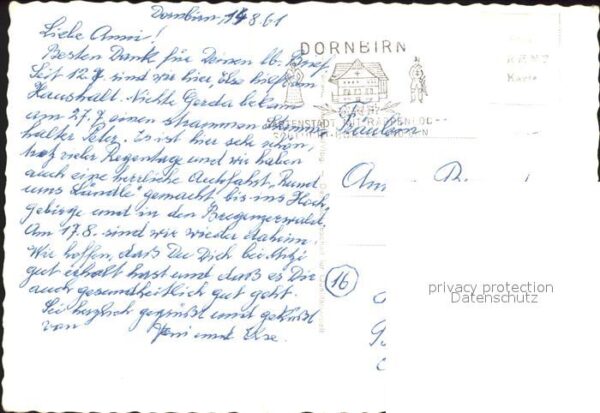 Dornbirn, 14.8.61
Liebe Anni!
Besten Dank für Deinen lb. Brief.
Seit 12.7. sind wir hier, Else hilft im
Haushalt. Nichte Gerda bekam
am 27.7. einen strammen
halter Peter. Es ist hier sehr schön,
trotz vieler Regentage und wir haben
auch eine herrliche Autofahrt "Rund
ums Ländle" gemacht bis ins Hoch-
gebirge und in den Bregenzerwald.
Am 17.8. sind wir wieder daheim.
Wir hoffen, daß Du Dich bei
gut erholt hast und daß es Dir
auch gesundheitlich gut geht.
Sei herzlich gegrüßt und geküßt
von und Else.
DORNBIRN
GARTENSTADT
Fräulein
16
privacy protection
Datenschutz